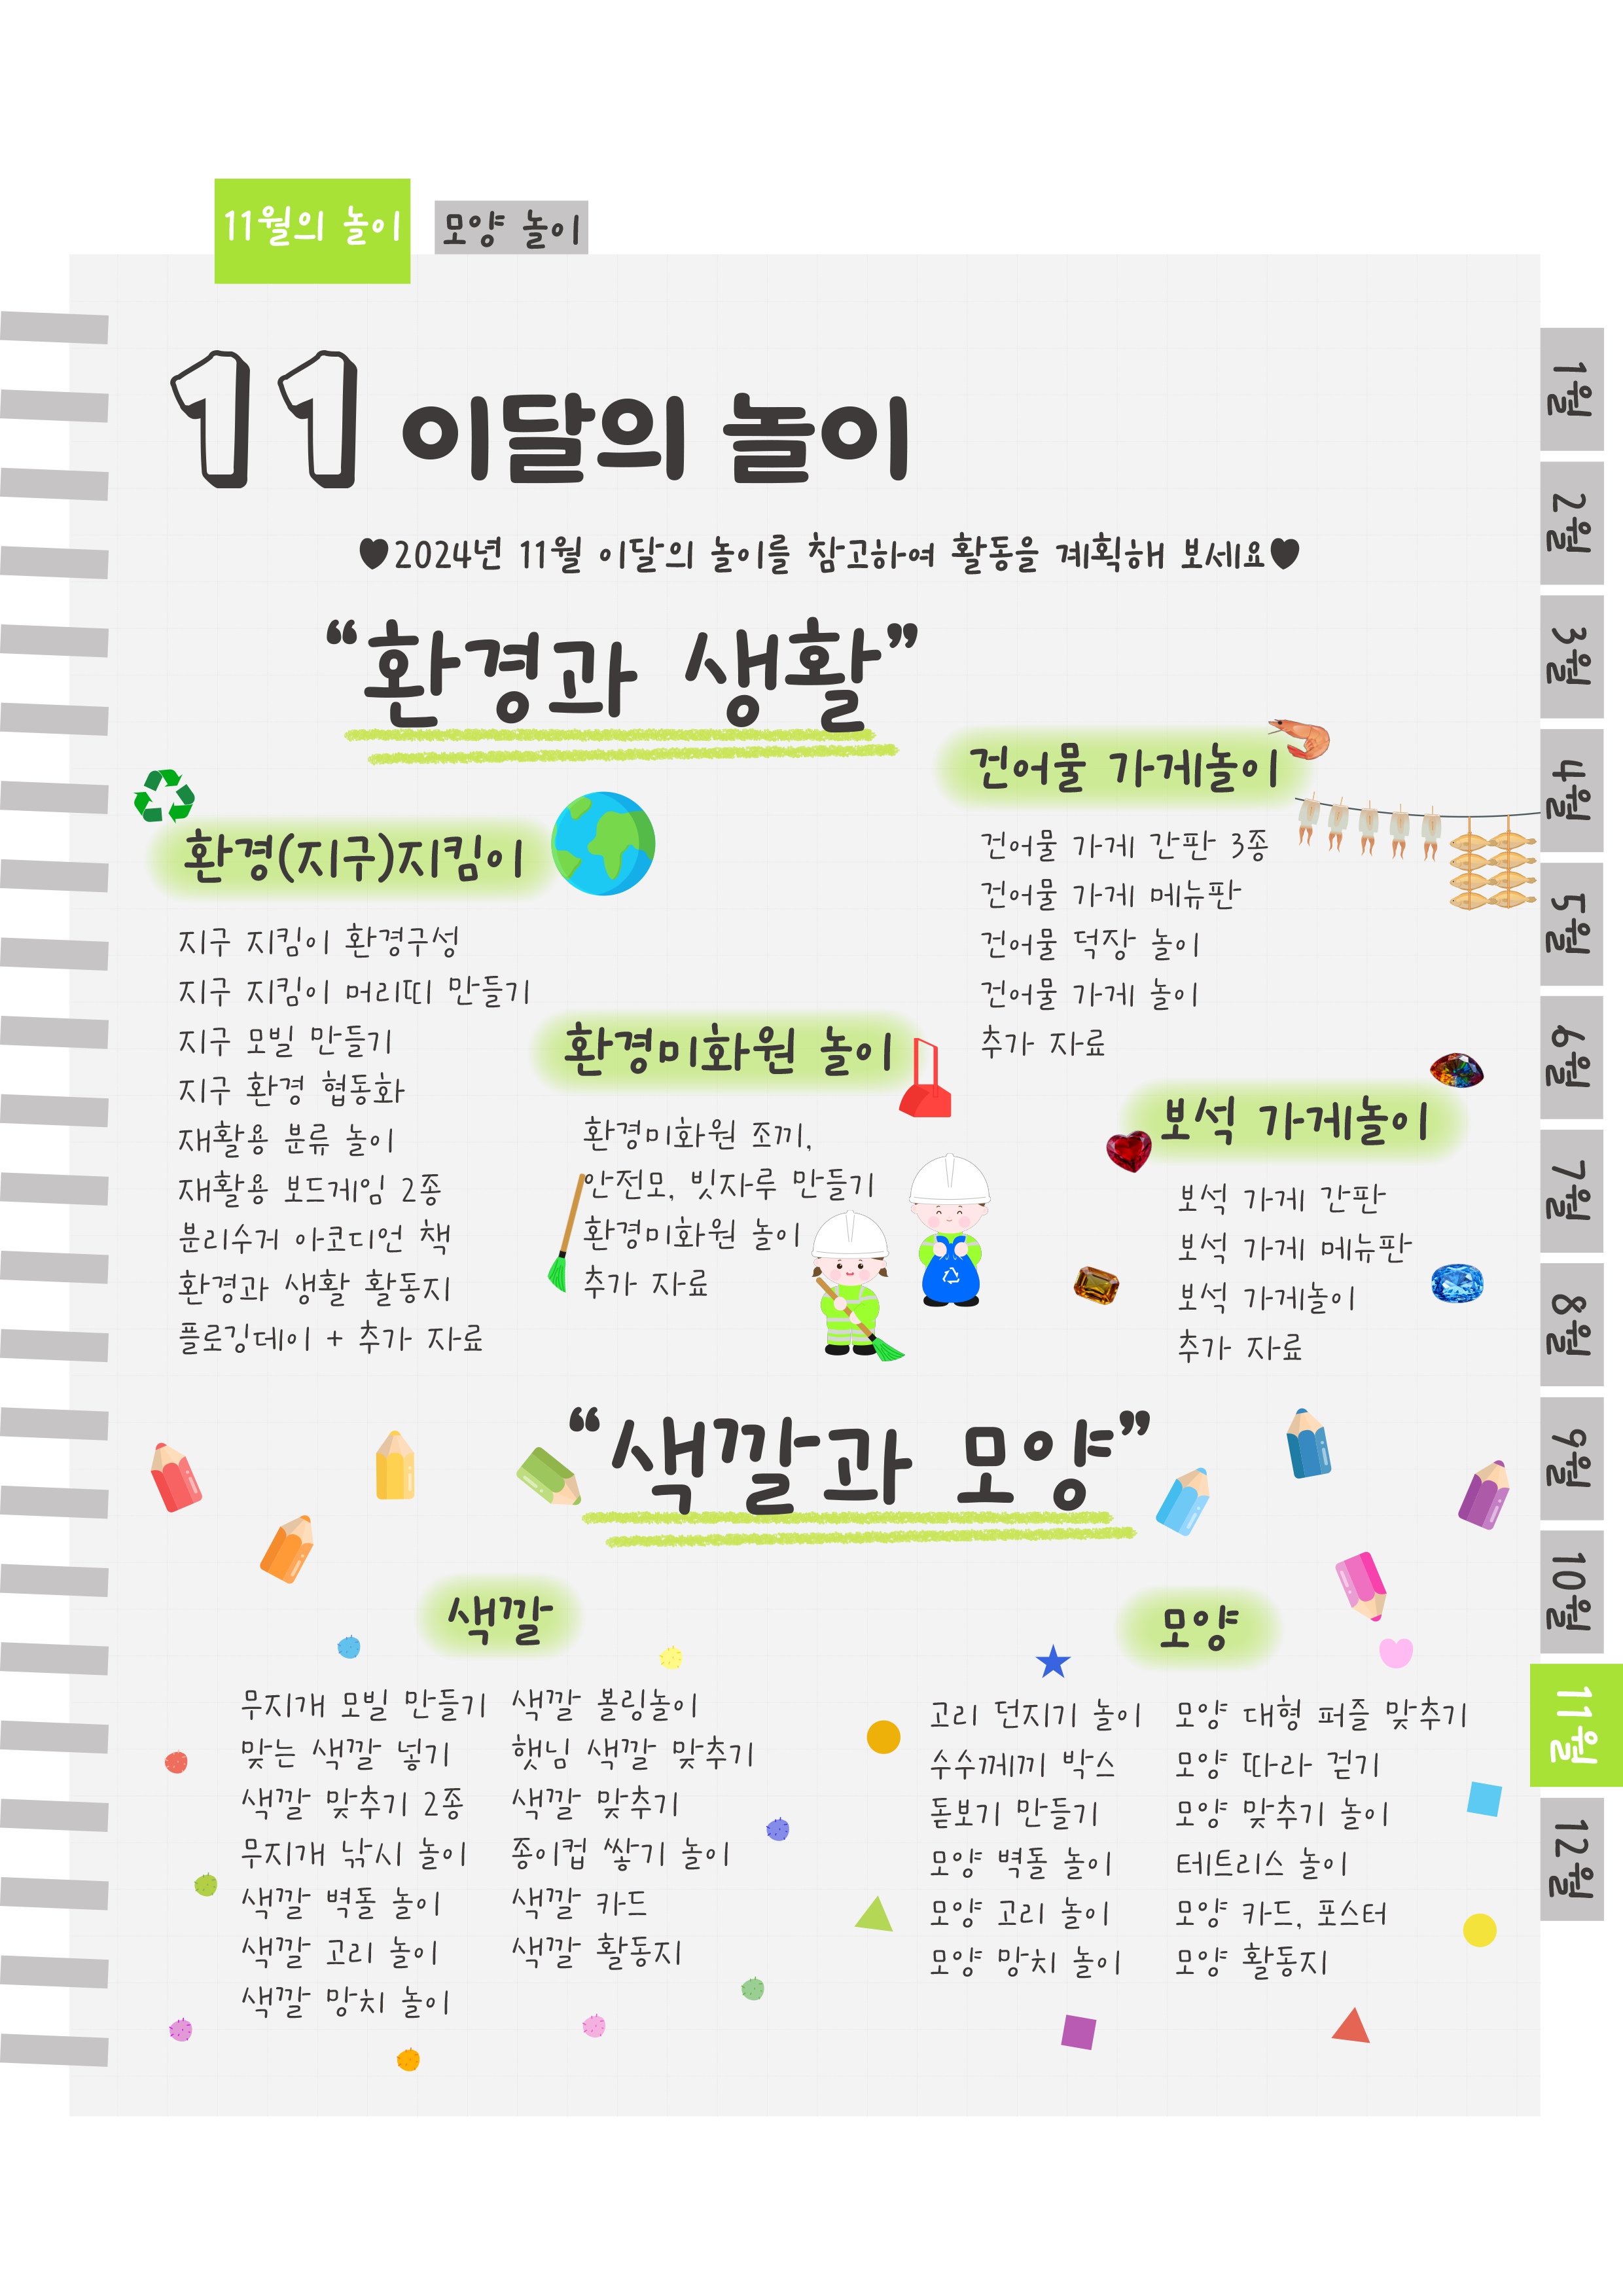 11월의 놀이
모양 놀이
11 이달의 놀이
♥2024년 11월 이달의 놀이를 참고하여 활동을 계획해 보세요♥
“환경과 생활”
환경(지구)지킴이
지구 지킴이 환경구성
지구 지킴이 머리띠 만들기
지구 모빌 만들기
지구 환경 협동화
재활용 분류 놀이
재활용 보드게임 2종
분리수거 아코디언 책
환경과 생활 활동지
플로깅데이 + 추가 자료
환경미화원 놀이
환경미화원 조끼,
안전모, 빗자루 만들기
환경미화원 놀이
추가 자료
건어물 가게놀이
건어물 가게 간판 3종
건어물 가게 메뉴판
건어물 덕장 놀이
건어물 가게 놀이
추가 자료
보석 가게놀이
보석 가게 간판
보석 가게 메뉴판
보석 가게놀이
추가 자료
“색깔과 모양”
색깔
무지개 모빌 만들기
맞는 색깔 넣기
색깔 맞추기 2종
무지개 낚시 놀이
색깔 벽돌 놀이
색깔 고리 놀이
색깔 망치 놀이
색깔 볼링놀이
햇님 색깔 맞추기
색깔 맞추기
종이컵 쌓기 놀이
색깔 카드
색깔 활동지
모양
고리 던지기 놀이
수수께끼 박스
돋보기 만들기
모양 벽돌 놀이
모양 고리 놀이
모양 망치 놀이
모양 대형 퍼즐 맞추기
모양 따라 걷기
모양 맞추기 놀이
테트리스 놀이
모양 카드, 포스터
모양 활동지
1월
2월
3월
4월
5월
6월
7월
8월
9월
10월
11월
12월